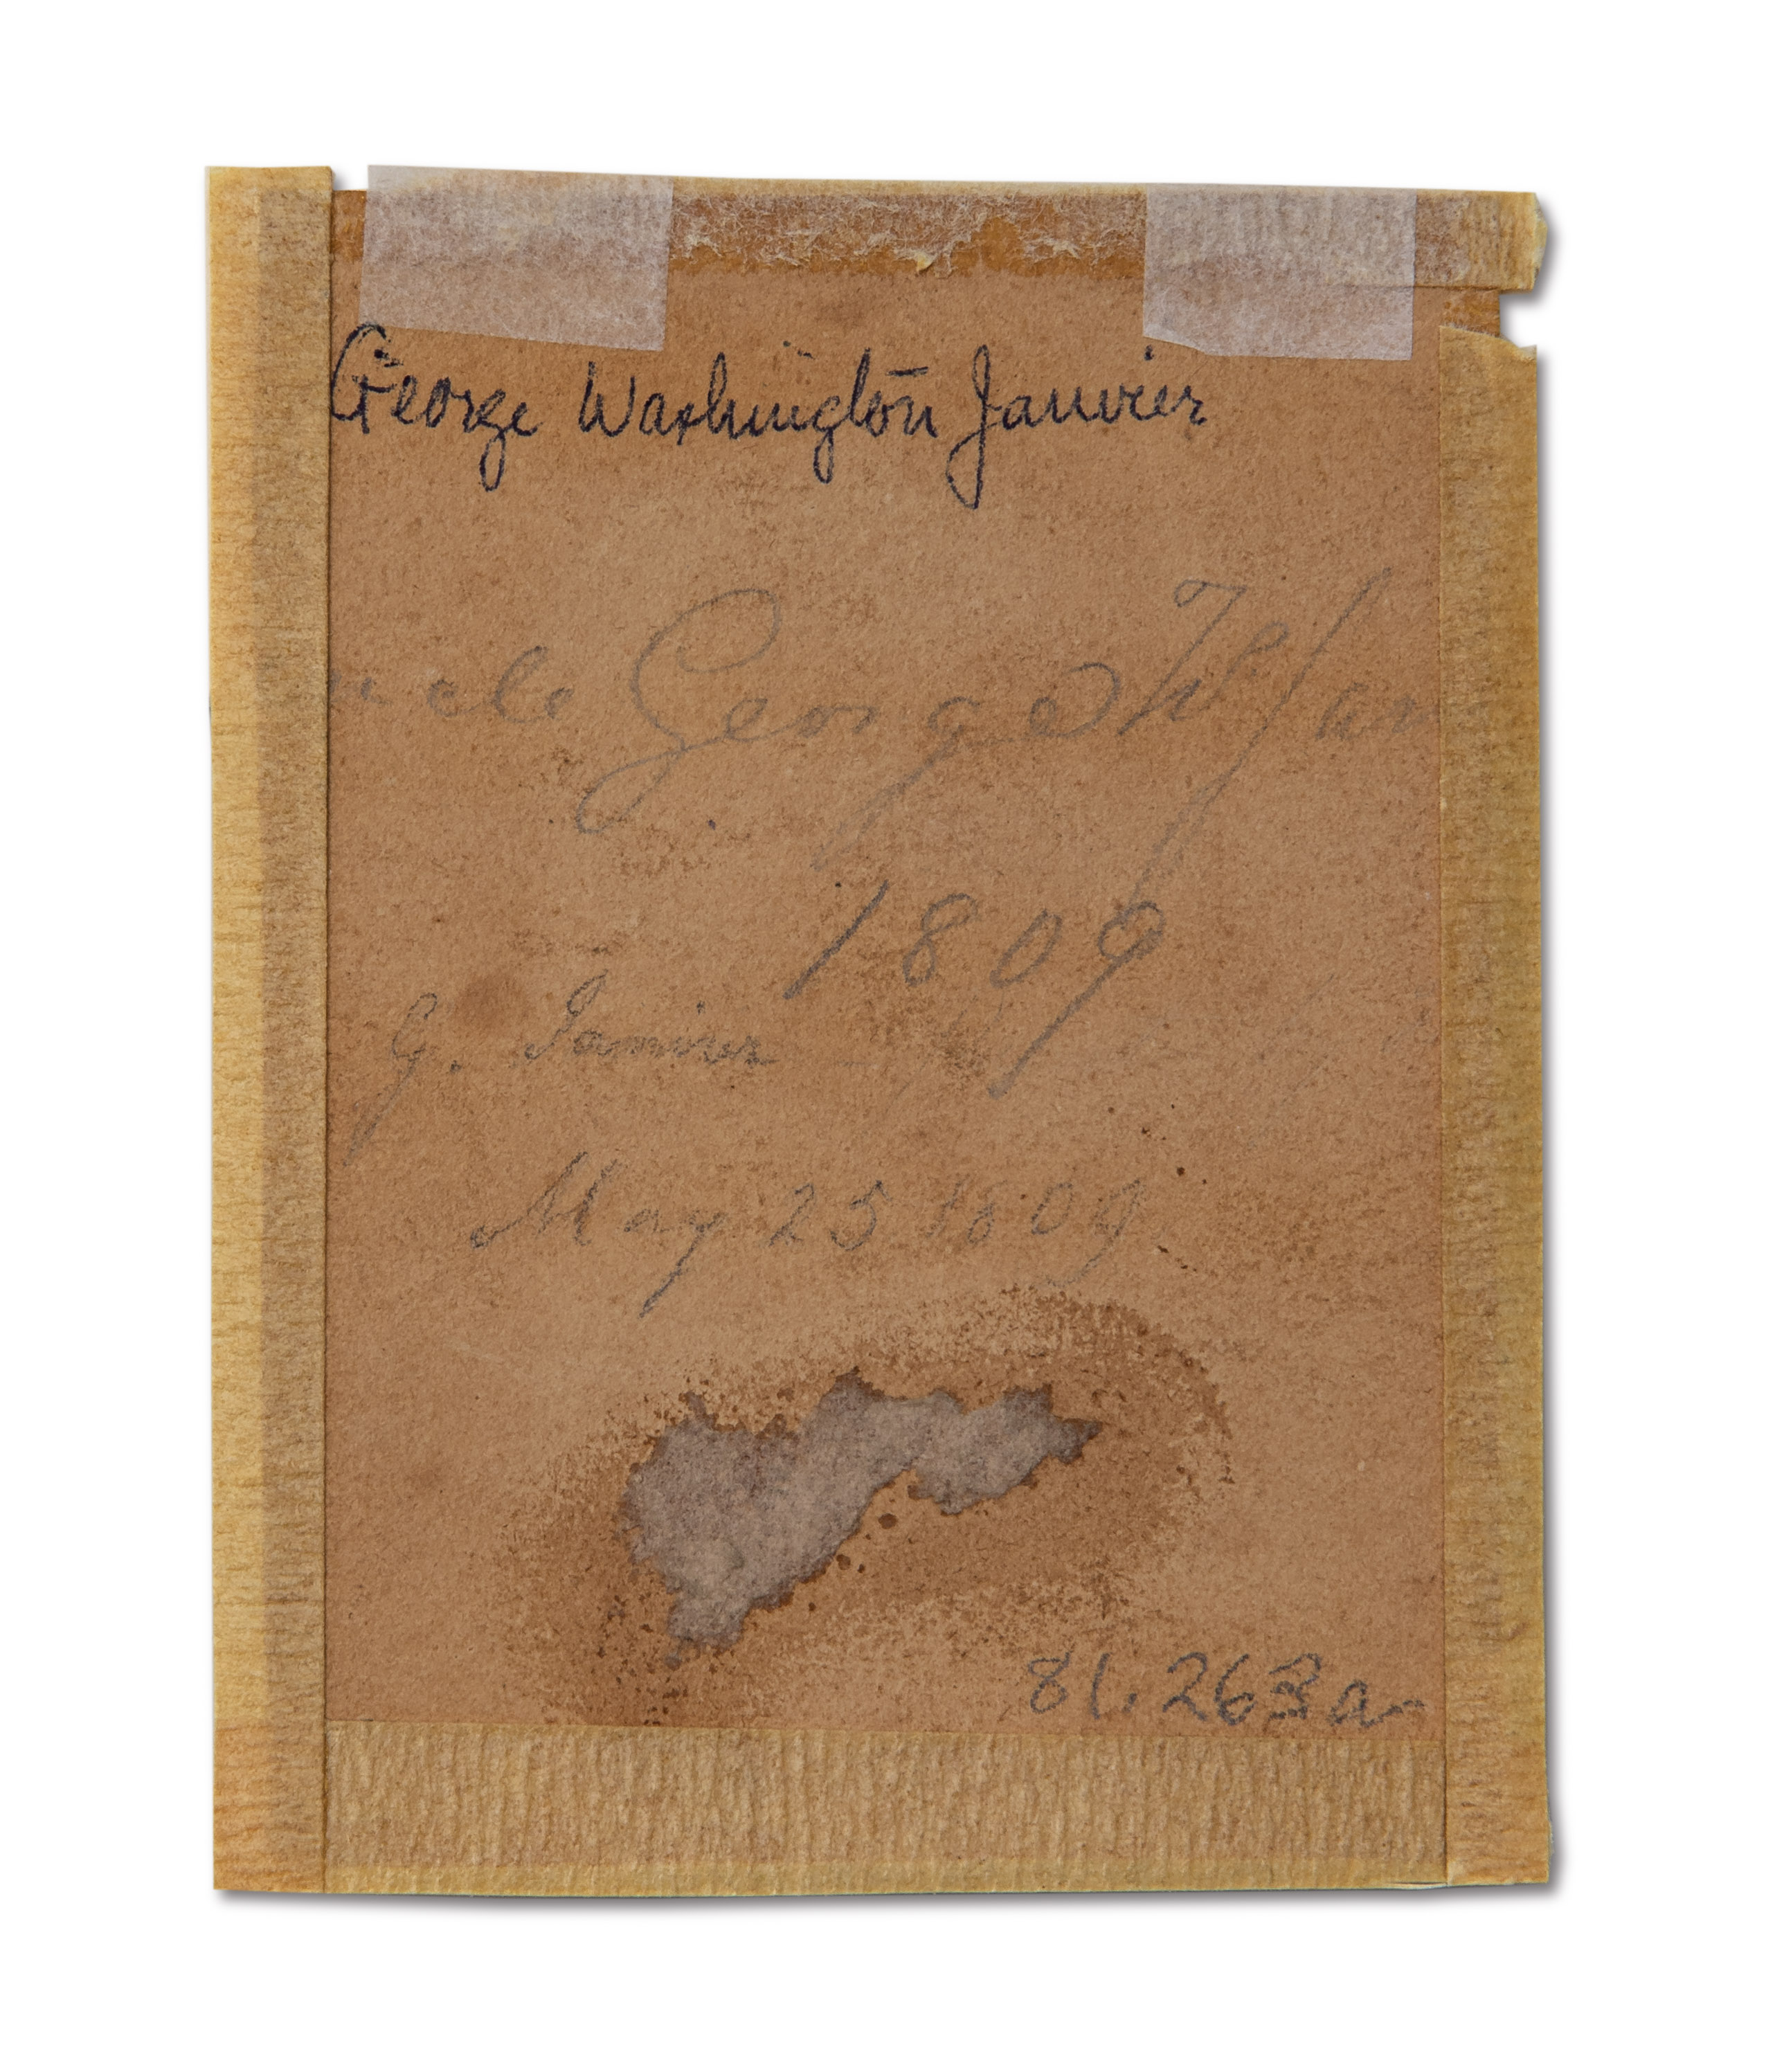 George Washington Janvier
ncle George W. Jan
1809
G. Janvier
May 25 1809
81.263a